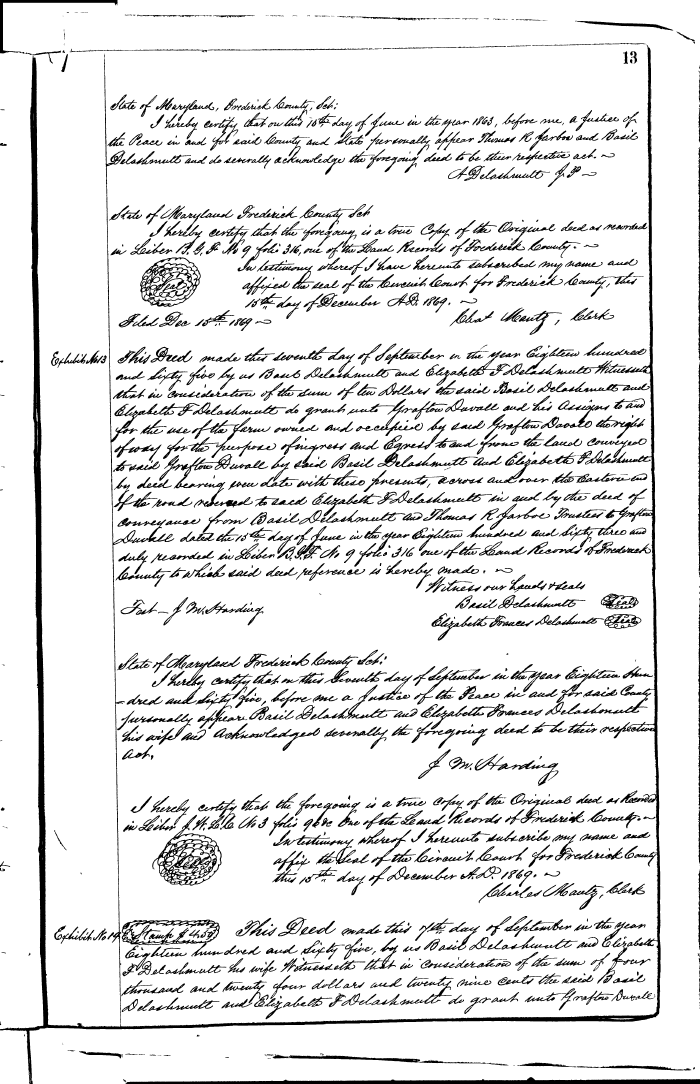 13
State of Maryland, Frederick County, Sct:
I hereby certify that on this 15th day of June in the year 1863, before me, a Justice of
the Peace in and for said County and State personally appear Thomas R Jarboe and Basil
Delashmutt and do severally acknowledge the foregoing deed to be their respective act. ~
A Delashmutt J. P ~
State of Maryland Frederick County Sct
I hereby certify that the foregoing is a true Copy of the Original deed as recorded
in Leiber B. G. F. No 9 folio 316, one of the Land Records of Frederick County. ~
In testimony whereof I have hereunto subscribed my name and
Seal
affixed the seal of the Circuit Court for Frederick County, this
15th day of December A.D. 1869. ~
Filed Dec 15th 1869 ~
Chas Mantz, Clerk
Exhibit No 13
This Deed made this seventh day of September in the year Eighteen hundred
and Sixty five by us Basil Delashmutt and Elizabeth F Delashmutt Witnesseth
that in consideration of the sum of ten Dollars the said Basil Delashmutt and
Elizabeth F Delashmutt do grant unto Grafton Duvall and his Assigns to and
for the use of the farm owned and occupied by said Grafton Duvall the right
of way for the purpose of ingress and Egress to and from the land conveyed
to said Grafton Duvall by said Basil Delashmutt and Elizabeth F Delashmutt
by deed bearing even date with these presents, across and over the Eastern end
of the road reserved to said Elizabeth F Delashmutt in and by the deed of
conveyance from Basil Delashmutt and Thomas R Jarboe Trustees to Grafton
Duvall dated the 15th day of June in the year Eighteen hundred and sixty three and
duly recorded in Leiber B. G. F. No 9 folio 316 one of the Land Records of Frederick
County to which said deed reference is hereby made. ~
Witness our hands & seals
Test - J M. Harding.
Basil Delashmutt Seal
Elizabeth Frances Delashmutt Seal
State of Maryland Frederick County Sct:
I hereby certify that on this Seventh day of September in the year Eighteen Hun-
-dred and sixty five, before me a Justice of the Peace in and for said County
personally appear Basil Delashmutt and Elizabeth Frances Delashmutt
his wife and Acknowledged severally the foregoing deed to be their respective
act.
J M. Harding
I hereby certify that the foregoing is a true copy of the Original deed as Recorded
in Leiber J. W. L. C. No 3 folio &c One of the Land Records of Frederick County. ~
In testimony whereof I hereunto subscribe my name and
Seal
affix the Seal of the Circuit Court for Frederick County
this 15th day of December A.D. 1869. ~
Charles Mantz, Clerk
Exhibit No 14
Stamp $4.50
This Deed made this 7th day of September in the year
Eighteen hundred and sixty five, by us Basil Delashmutt and Elizabeth
F Delashmutt his wife Witnesseth that in consideration of the sum of four
thousand and twenty four dollars and twenty nine cents the said Basil
Delashmutt and Elizabeth F Delashmutt do grant unto Grafton Duvall